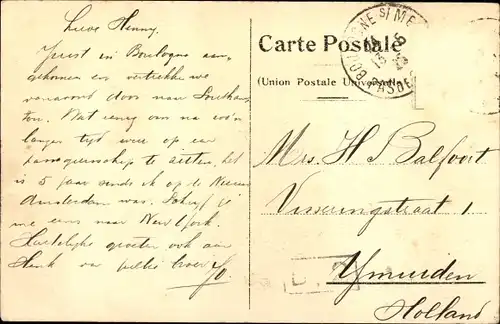 Lieve Henny.
Juist in Boulogne aan-
gekomen en vertrekken we
vanavond door naar Southamp-
ton. Wat eenig om na zoo'n
langen tijd weer op een
passagierschip te zitten, het
is 5 jaar sinds ik op de Nieuw
Amsterdam was. Schrijf U
me eens naar New York.
Hartelijke groeten ook aan
Henk van jullie
Jo
BOULOGNE S/MER
PAS DE
Carte Postale
(Union Postale Universelle)
Mrs. H Balfoort
Visseringstraat 1
Ymuiden
Holland